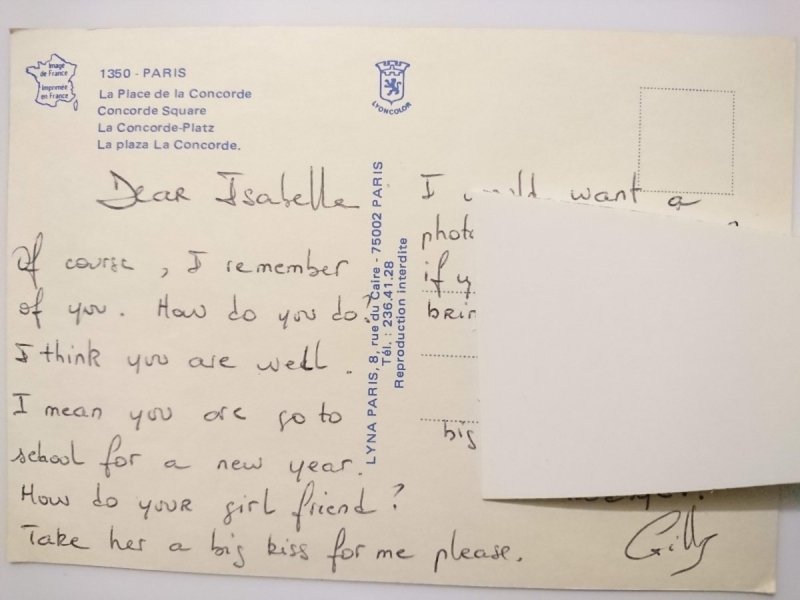 Image
de France
Imprimée
en France
1350 - PARIS
La Place de la Concorde
Concorde Square
La Concorde-Platz
La plaza La Concorde.
LYONCOLOR
Dear Isabelle
Of course, I remember
of you. How do you do?
I think you are well.
I mean you are go to
school for a new year.
How do your girl friend?
Take her a big kiss for me please.
LYNA PARIS, 8, rue du Caire - 75002 PARIS
Tél. : 236.41.28
Reproduction interdite
I want a
if
big